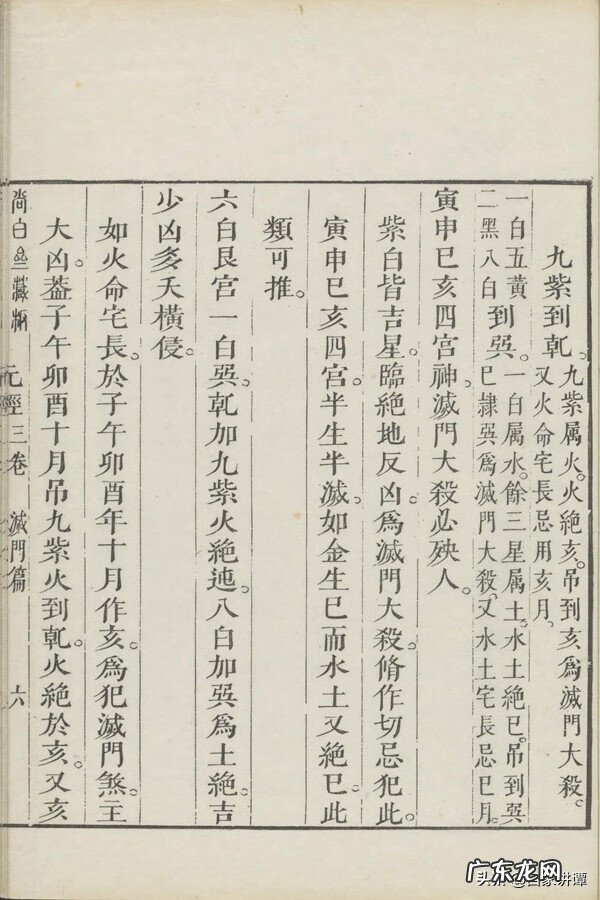 九紫到乹。九紫属火。火絶亥。吊到亥爲滅門大殺。
又火命宅長忌用亥月。
一白五黄
二黑八白到巽。一白属水。餘三星属土。水土絶巳。吊到巽
巳隷巽爲滅門大殺。又水土宅長忌巳月。
寅申巳亥四宫神。滅門大殺必殃人。
紫白皆吉星。臨絶地反凶。爲滅門大殺。脩作切忌犯此。
寅申巳亥四宫。半生半滅。如金生巳而水土又絶巳。此
類可推。
六白艮宫一白巽。乹加九紫火絶迍。八白加巽爲土絶。吉
少凶多夭横侵。
如火命宅長。於子午卯酉年十月作亥。爲犯滅門煞。主
大凶。葢子午卯酉十月吊九紫火到乹。火絶於亥。又亥
尚白齋藏板 元經三卷 滅門篇 六
广东龙网
头条 @百家讲谭